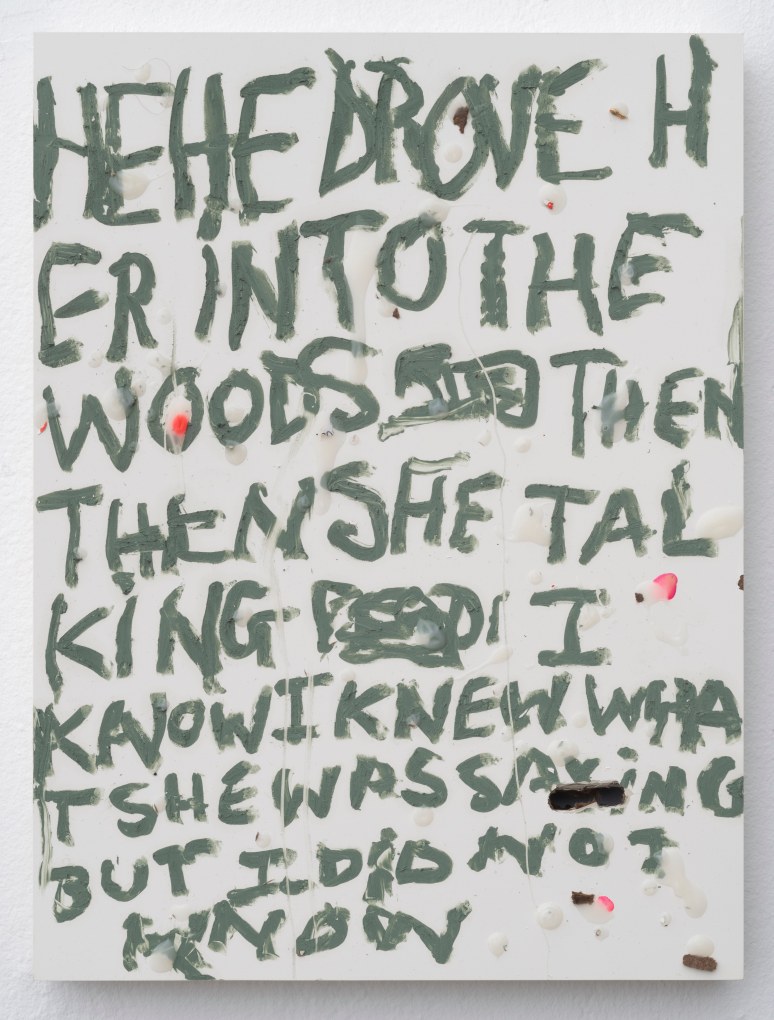 HEHE DROVE H
ER INTO THE
WOODS THEN
THEN SHE TAL
KING I
KNOW I KNEW WHA
T SHE WAS SAYING
BUT I DID NOT
KNOW